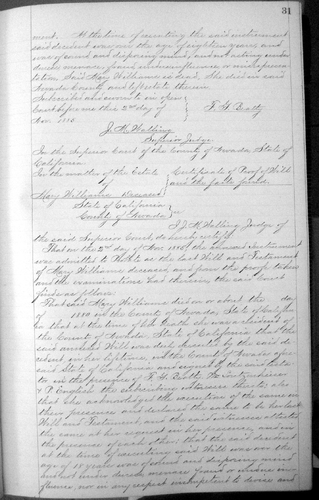 31
ment. At the time of executing the said instrument
said decedent was over the age of eighteen years, and
was of sound and disposing mind, and not acting under
duress, menace, fraud, undue influence or misrepresen-
tation. Said Mary Williams is dead. She died in said
Nevada County and left estate therein
Subscribed and sworn to in open
Court before me this 2nd day of
Nov. 1880.
J. M. Walling
Superior Judge
In the Superior Court of the County of Nevada State of
California
In the matter of the Estate
of
Certificate of Proof of Will
and the facts found.
Mary Williams Deceased
State of California
County of Nevada
ss
I J. M. Walling Judge of
the said Superior Court do hereby certify
That on the 2nd day of Nov. 1880 the annexed instrument
was admitted to Probate as the last Will and Testament
of Mary Williams deceased and from the proofs taken
and the examinations had therein, the said Court
finds as follows
That said Mary Williams died on or about the day
of 1880 in the County of Nevada, State of Califor-
nia that at the time of her death she was a resident of
the County of Nevada State of California that the
said annexed Will was duly executed by the said de-
cedent in her lifetime, in the County of Nevada
said State of California and signed by the said testa-
trix in the presence of
the subscribing witnesses thereto; also
that she acknowledged the execution of the same in
their presence and declared the same to be her last
Will and Testament, and the said witnesses attested
the same at her request in her presence, and in
the presence of each other; that the said decedent
at the time of executing said Will was over the
age of 18 years was of sound and disposing mind
and not under duress, menace, fraud or undue in-
fluence, nor in any respect incompetent to devise and